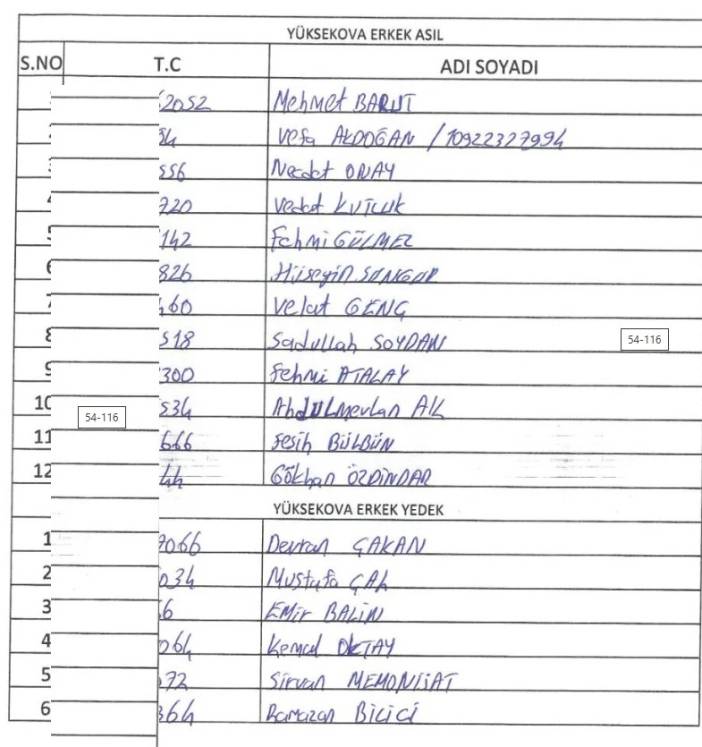 YÜKSEKOVA ERKEK ASIL
S.NO T.C ADI SOYADI
2052 Mehmet BARUT
Vefa AKDOĞAN / 10922327994
556 Necdet ONAY
720 Vedat KUTLUK
142 Fehmi GÜLMEZ
6 826 Hüseyin SONGUR
460 Velat GENÇ
8 518 Sadullah SOYDAN 54-116
300 Fehmi ATALAY
10 54-116 534 Abdulmevlan AK
11 666 Fesih BÜLBÜN
12 44 Gökhan ÖZDİNDAR
YÜKSEKOVA ERKEK YEDEK
1 7066 Devran ÇAKAN
2 034 Mustafa ÇAL
3 6 EMİr BALİN
4 064 Kemal OKTAY
5 72 Sirvan
6 364 Ramazan BİLİCİ